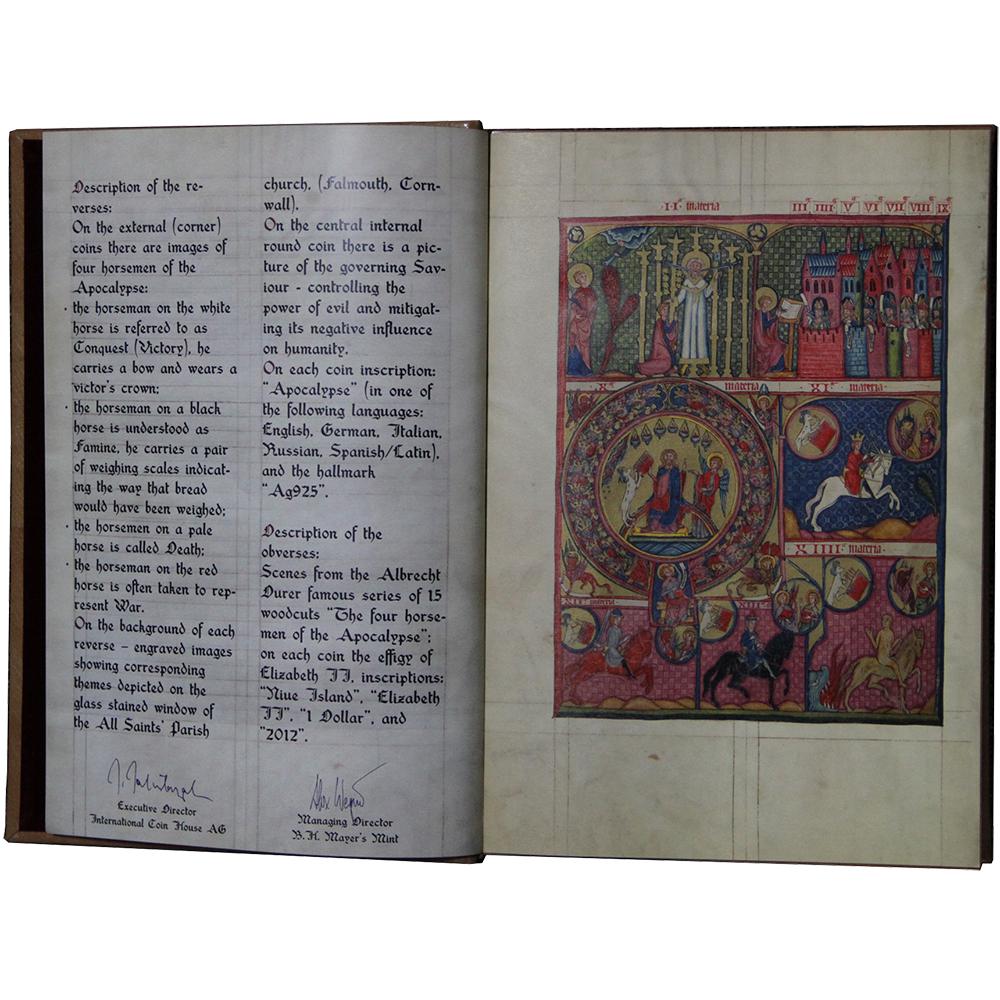 Description of the re-
verses:
On the external (corner)
coins there are images of
four horsemen of the
Apocalypse:
· the horseman on the white
horse is referred to as
Conquest (Victory), he
carries a bow and wears a
victor's crown;
· the horseman on a black
horse is understood as
Famine, he carries a pair
of weighing scales indicat-
ing the way that bread
would have been weighed;
· the horsemen on a pale
horse is called Death;
· the horseman on the red
horse is often taken to rep-
resent War.
On the background of each
reverse – engraved images
showing corresponding
themes depicted on the
glass stained window of
the All Saints' Parish
church, (Falmouth, Corn-
wall).
On the central internal
round coin there is a pic-
ture of the governing Sav-
iour - controlling the
power of evil and mitigat-
ing its negative influence
on humanity.
On each coin inscription:
"Apocalypse" (in one of
the following languages:
English, German, Italian,
Russian, Spanish/Latin),
and the hallmark
"Ag925".
Description of the
obverses:
Scenes from the Albrecht
Durer famous series of 15
woodcuts "The four horse-
men of the Apocalypse";
on each coin the effigy of
Elizabeth II, inscriptions:
"Niue Island", "Elizabeth
II", "1 Dollar", and
"2012".
Executive Director
International Coin House AG
Managing Director
B.H. Mayer's Mint
·II· materia
III IIII V VI VII VIII IX
X materia
XI· materia·
XIIII· materia·
XII materia·
XIII